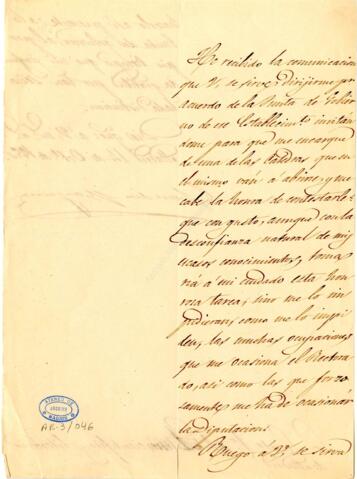 He recibido la comunicacion
que V. se sirve dirijirme por
acuerdo de la Junta de Gobier
no de ese Establecimto. invitán
dome para que me encargue
de una de las Catedras que en
el mismo ván á abrirse; y me
cabe la honra de contestarle
que con gusto, aunque con la
desconfianza natural de mis
escasos conocimientos, toma
ria á mi cuidado esta hon
rosa tarea, sino me lo im
pidieran, como me lo impi
den, las muchas ocupaciones
que me ocasiona el Rectora
do, asi como las que forzo
samente me ha de ocasionar
la Diputacion.
Ruego á V. se sirva
ATENEO DE
MADRID
AR-3/046